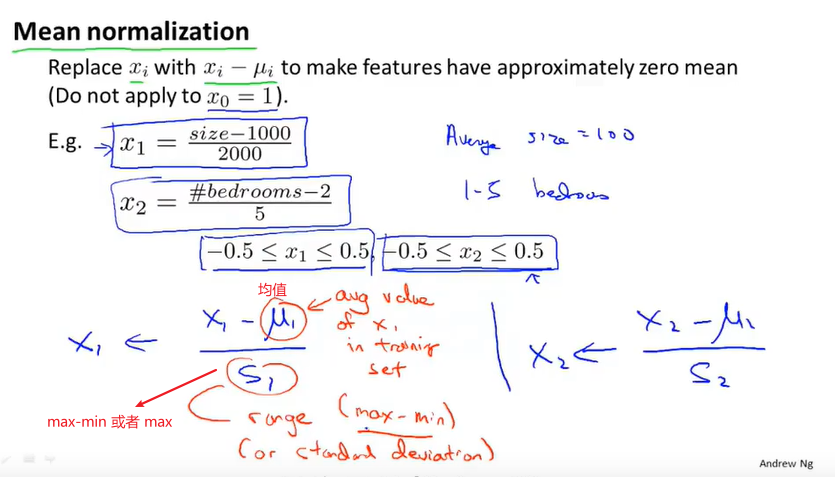 Mean normalization
Replace xᵢ with xᵢ − μᵢ to make features have approximately zero mean
(Do not apply to x₀ = 1).
E.g. → x₁ = (size−1000)/2000
Average size = 100
x₂ = (#bedrooms−2)/5
1-5 bedrooms
−0.5 ≤ x₁ ≤ 0.5, −0.5 ≤ x₂ ≤ 0.5
均值
x₁ ← (x₁ − μ₁)/S₁
avg value
of x₁
in training
set
x₂ ← (x₂ − μ₂)/S₂
max-min 或者 max
range (max-min)
(or standard deviation)
Andrew Ng